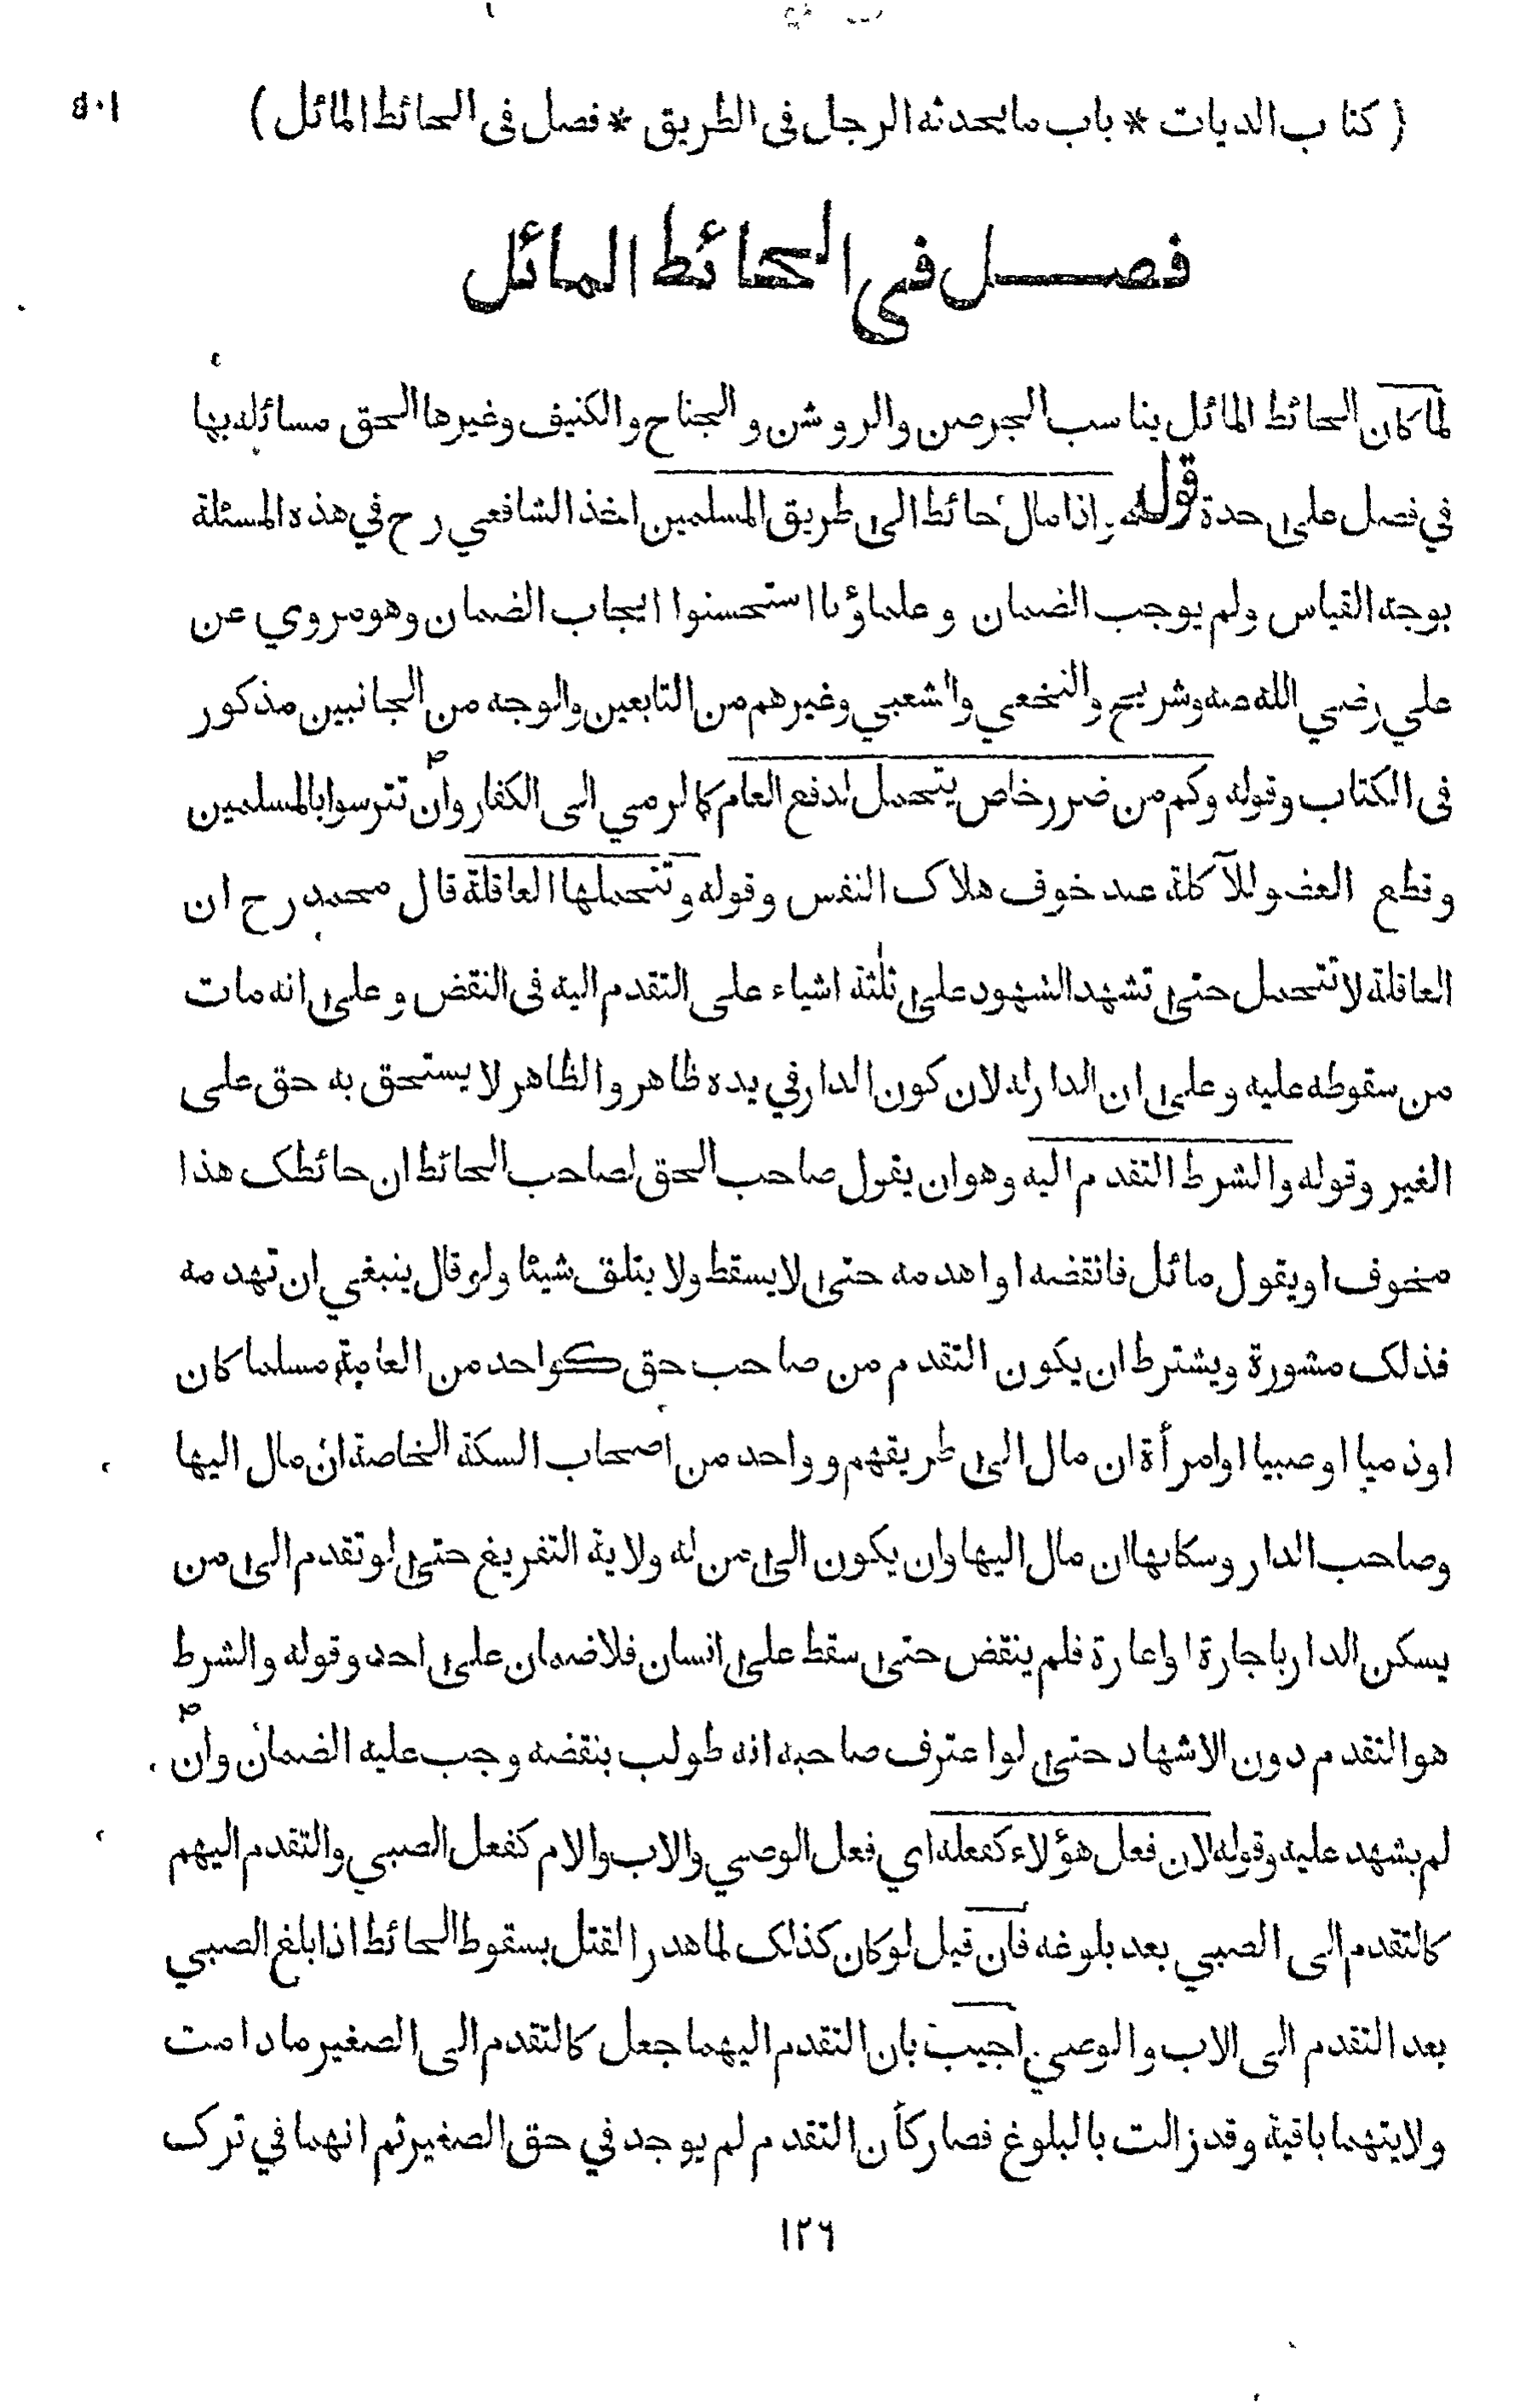 ( كتاب الديات * باب ما يحدثه الرجل في الطريق * فصل في الحائط المائل ) ٥٠١
فصل في الحائط المائل
لما كان الحائط المائل يناسب الجرصن والروشن والجناح والكنيف وغيرها الحق مسائله بها
في فصل على حدة قوله وإذا مال حائط الى طريق المسلمين اخذ الشافعي رح في هذه المسئلة
بوجه القياس ولم يوجب الضمان وعلماؤنا استحسنوا ايجاب الضمان وهو مروي عن
علي رضي الله عنه وشريح والنخعي والشعبي وغيرهم من التابعين والوجه من الجانبين مذكور
في الكتاب وقوله وكم من ضرر خاص يتحمل لدفع العام كالرمي الى الكفار وان تترسوا بالمسلمين
وقطع العضو للآكلة عند خوف هلاك النفس وقوله وتتحملها العاقلة قال محمد رح ان
العاقلة لا تتحمل حتى تشهد الشهود على ثلثة اشياء على التقدم اليه في النقض وعلى انه مات
من سقوطه عليه وعلى ان الدار له لان كون الدار في يده ظاهر والظاهر لا يستحق به حق على
الغير وقوله والشرط التقدم اليه وهو ان يقول صاحب الحق لصاحب الحائط ان حائطك هذا
مخوف او يقول مائل فانقضه او اهدمه حتى لا يسقط ولا يتلف شيئا ولو قال ينبغي ان تهدمه
فذلك مشورة ويشترط ان يكون التقدم من صاحب حق كواحد من العامة مسلما كان
او ذميا او صبيا او امرأة ان مال الى طريقهم وواحد من اصحاب السكة الخاصة ان مال اليها
وصاحب الدار وسكانها ان مال اليها وان يكون الى من له ولاية التفريغ حتى لو تقدم الى من
يسكن الدار باجارة او اعارة فلم ينقض حتى سقط على انسان فلا ضمان على احد وقوله والشرط
هو التقدم دون الاشهاد حتى لو اعترف صاحبه انه طولب بنقضه وجب عليه الضمان وان
لم يشهد عليه وقوله لان فعل هؤلاء كفعله اي فعل الوصي والاب والام كفعل الصبي والتقدم اليهم
كالتقدم الى الصبي بعد بلوغه فان قيل لو كان كذلك لما هدر القتل بسقوط الحائط اذا بلغ الصبي
بعد التقدم الى الاب والوصي اجيب بان التقدم اليهما جعل كالتقدم الى الصغير ما دامت
ولايتهما باقية وقد زالت بالبلوغ فصار كأن التقدم لم يوجد في حق الصغير ثم انهما في ترك
١٢٦